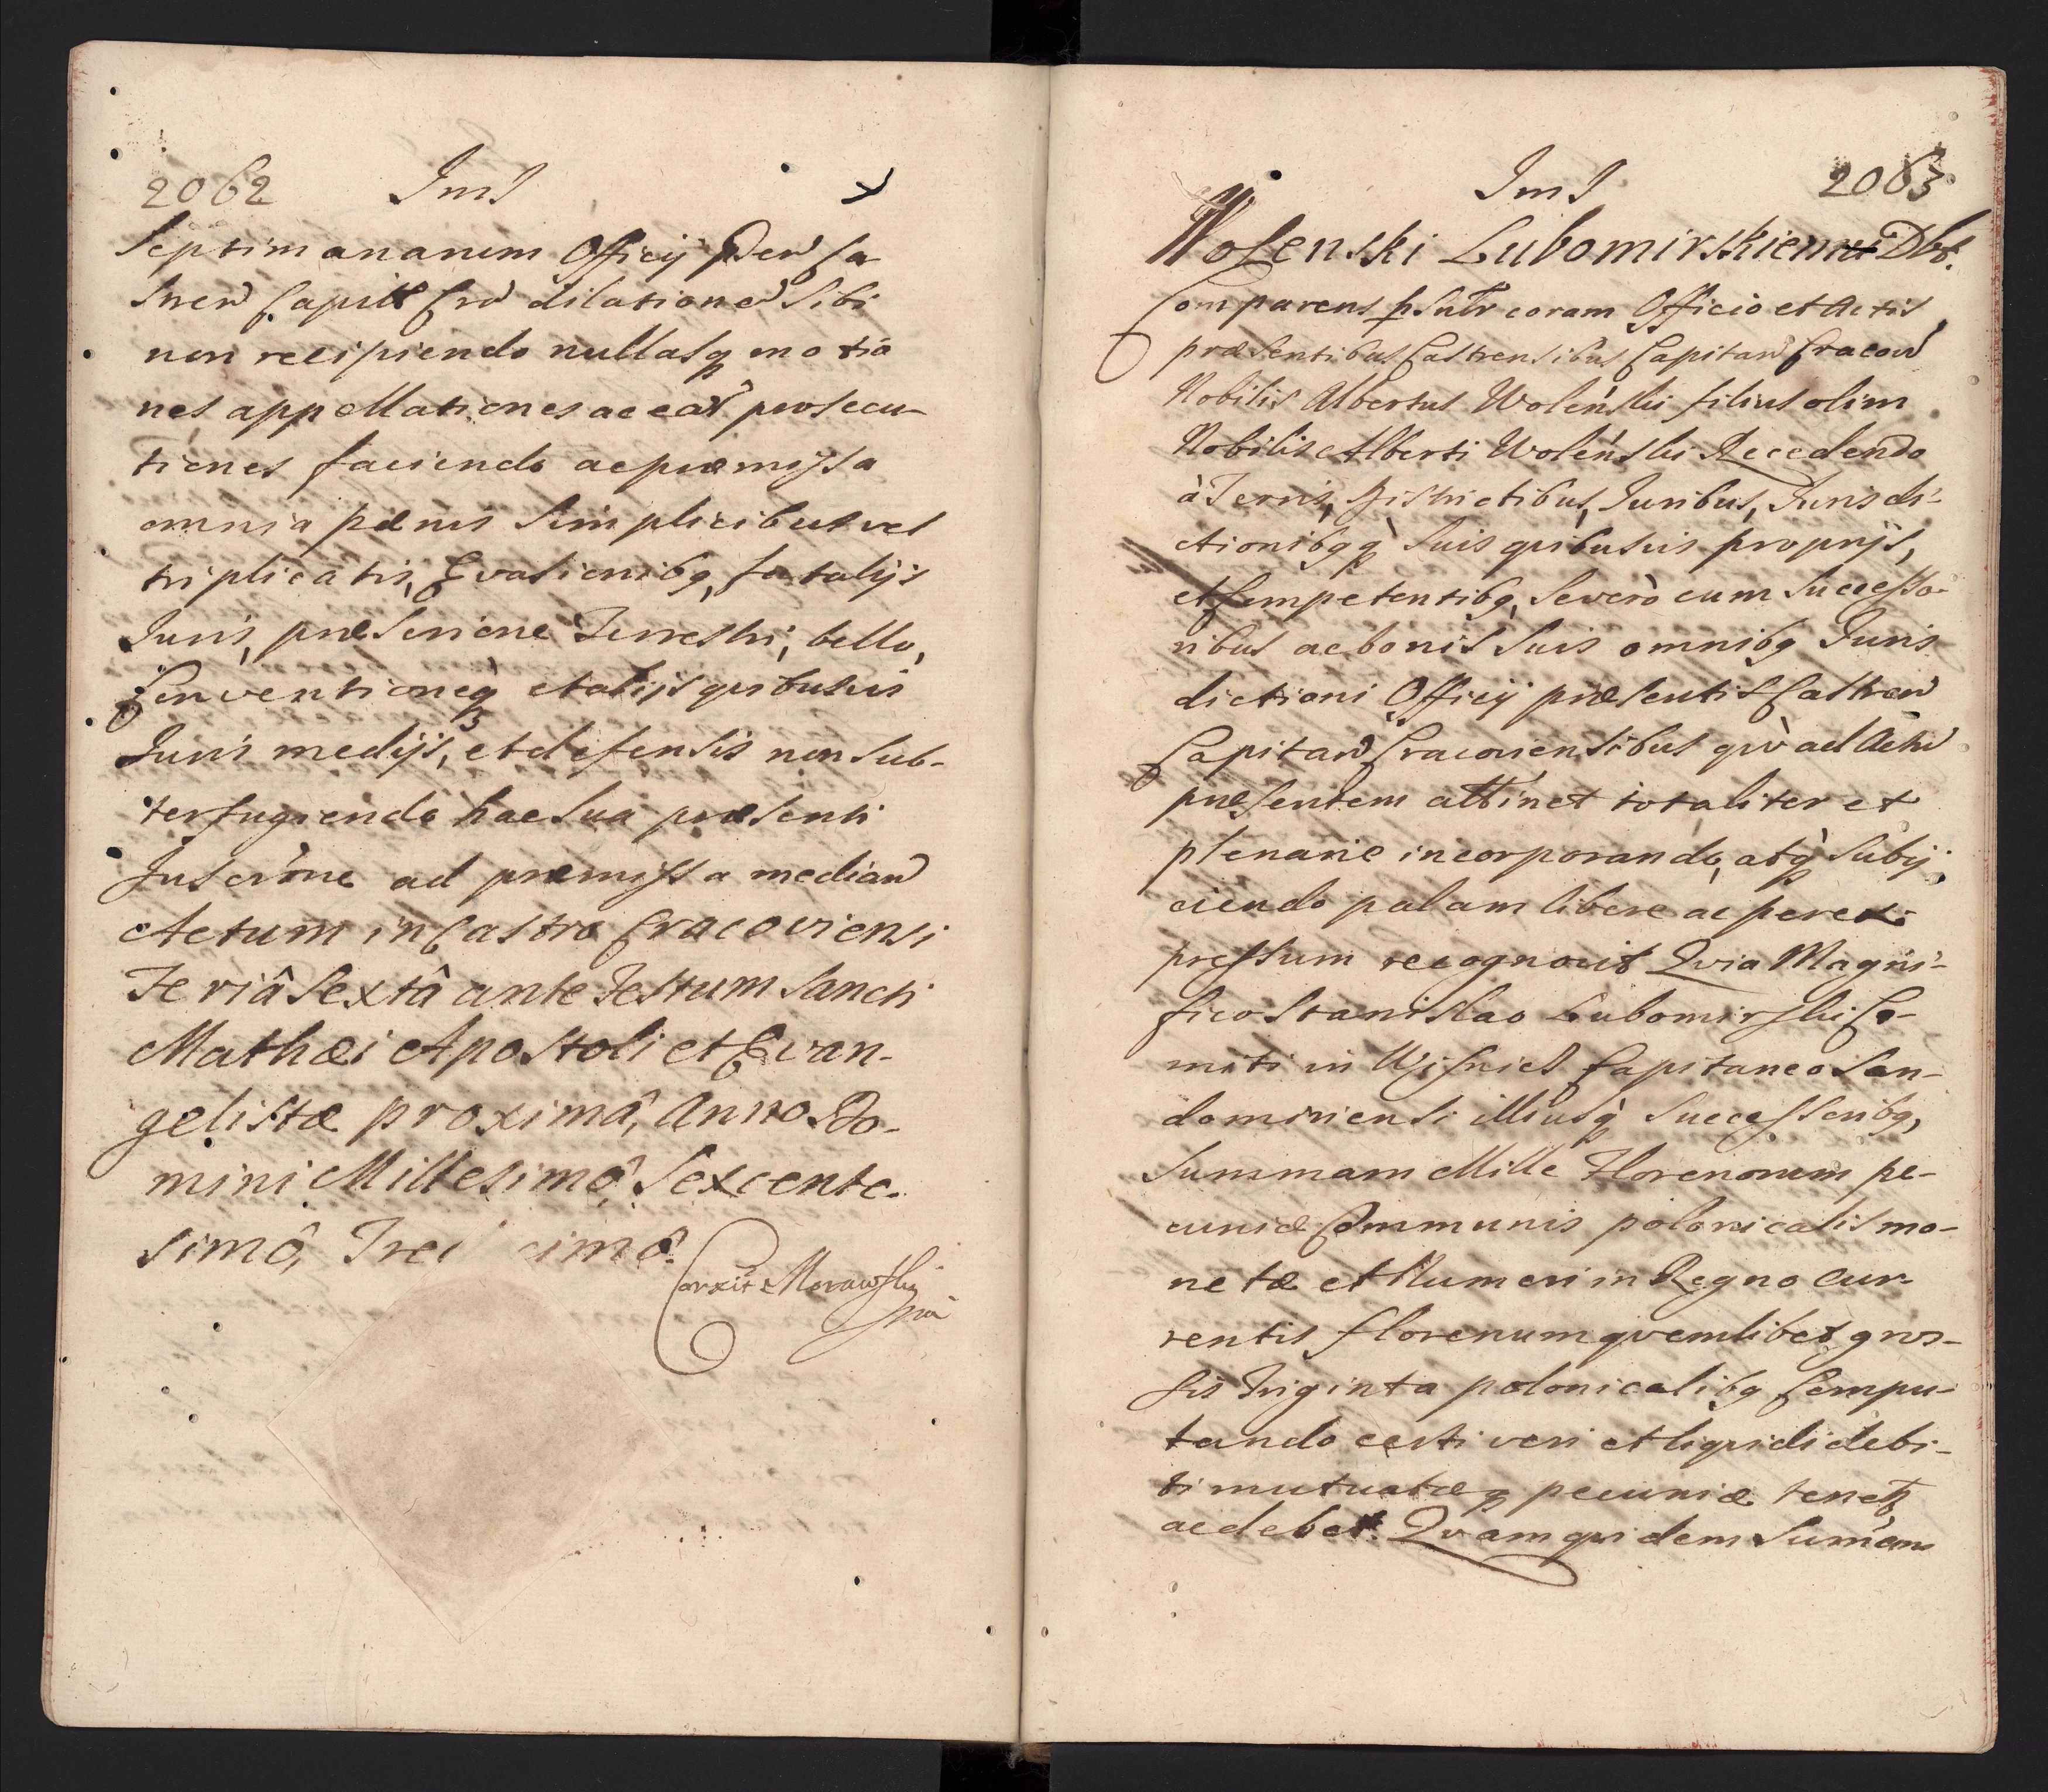 2062 Ins
Septimananum Officij pñen Ca
stren Capit Cra dilationem sibi
non recipiendo nullasq motio
nes appellationes ac ear prosecu-
tiones faciendo ac præmissa
omnia pænis simplicibus vel
triplicatis, Evasionibq, fatalijs
Juris, præscriõne Terrestri, bello,
Conventioneq et alijs quibusvis
Juris medijs, et defensis non sub-
terfugiendo hac sua præsenti
Inscriõne ad præmissa median
Actum in Castro Cracoviensi
Feriâ Sextâ ante Festum Sancti
Mathæi Apostoli et Evan-
gelistæ proximâ, Anno Do-
mini Millesimô, Sexcente-
simô, Trei cimô.
Corexit Morawsky
Ins 2063
Wolenski Lubomirskiemu Dbt.
Comparens psnltr coram Officio et Actis
præsentibus Castrensibus Capitan Cracow
Nobilis Albertus Woleński filius olim
Nobilis Alberti Woleński Recedendo
à Terris, Districtibus, Juribus, Jurisdi-
ctionibqq suis quibusvis proprijs,
et Competentibq, Se verò cum Successo-
ribus ac bonis suis omnibq Juris
dictioni Officij præsentis Castren
Capitan Cracoviensibus qvò ad Actu
præsentem attinet totaliter et
plenarie incorporando, atq subij
ciendo palam libere ac per ex-
pressum recognovit Qvia Magni-
fico Stanislao Lubomirski Co-
miti in Wisnicz Capitaneo San-
domiriensi illiusq Successoribq,
Summam Mille Florenorum pe-
cuniæ Communis polonicalis mo-
netæ et Numeri in Regno cur-
rentis florenum qvemlibet gros-
sis triginta polonicalibq Compu-
tando certi veri et liqvidi debi-
ti mutuatæq pecuniæ tenetz
ac debet. Qvam qvidem Sumam